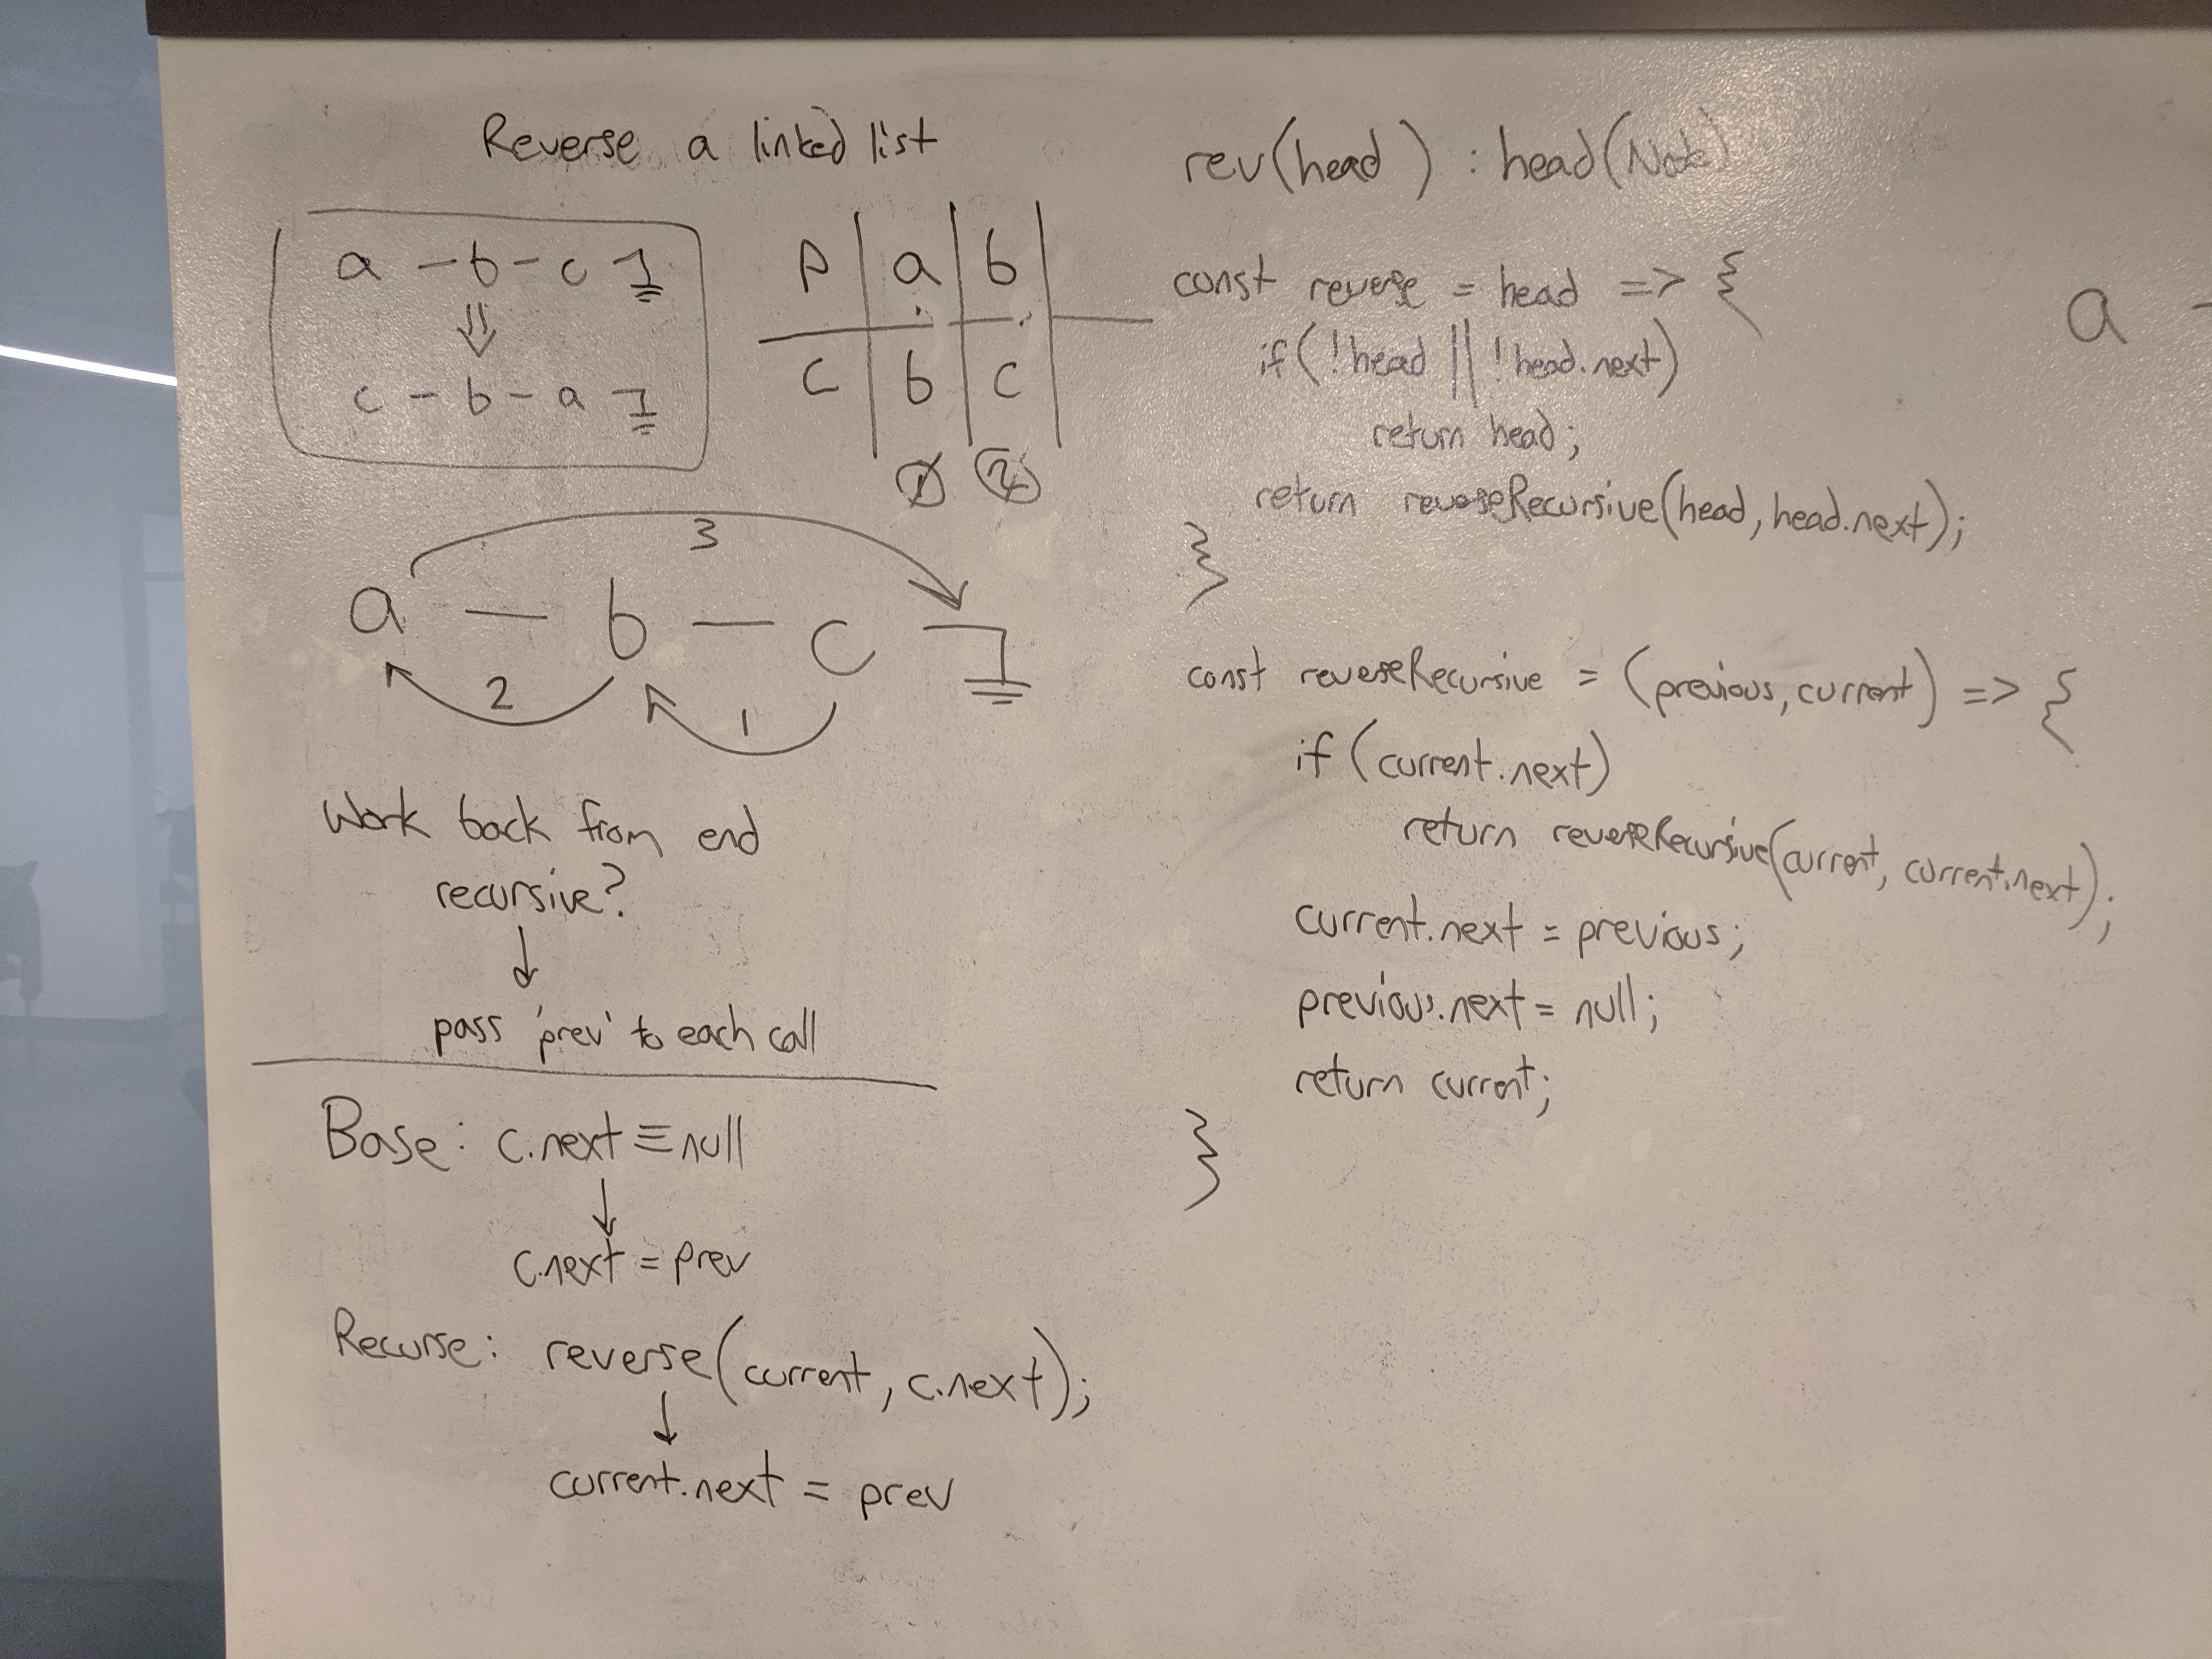 Reverse a linked list
a - b - c
⇓
c - b - a
P | a | b
C | b | c
1 2
3
a - b - c
2 1
Work back from end
recursive?
↓
pass 'prev' to each call
Base: c.next ≡ null
↓
c.next = prev
Recurse: reverse(current, c.next);
↓
current.next = prev
rev(head) : head(Node)
const reverse = head => {
if(!head || !head.next)
return head;
return reverseRecursive(head, head.next);
}
const reverseRecursive = (previous, current) => {
if (current.next)
return reverseRecursive(current, current.next);
current.next = previous;
previous.next = null;
return current;
}
a -